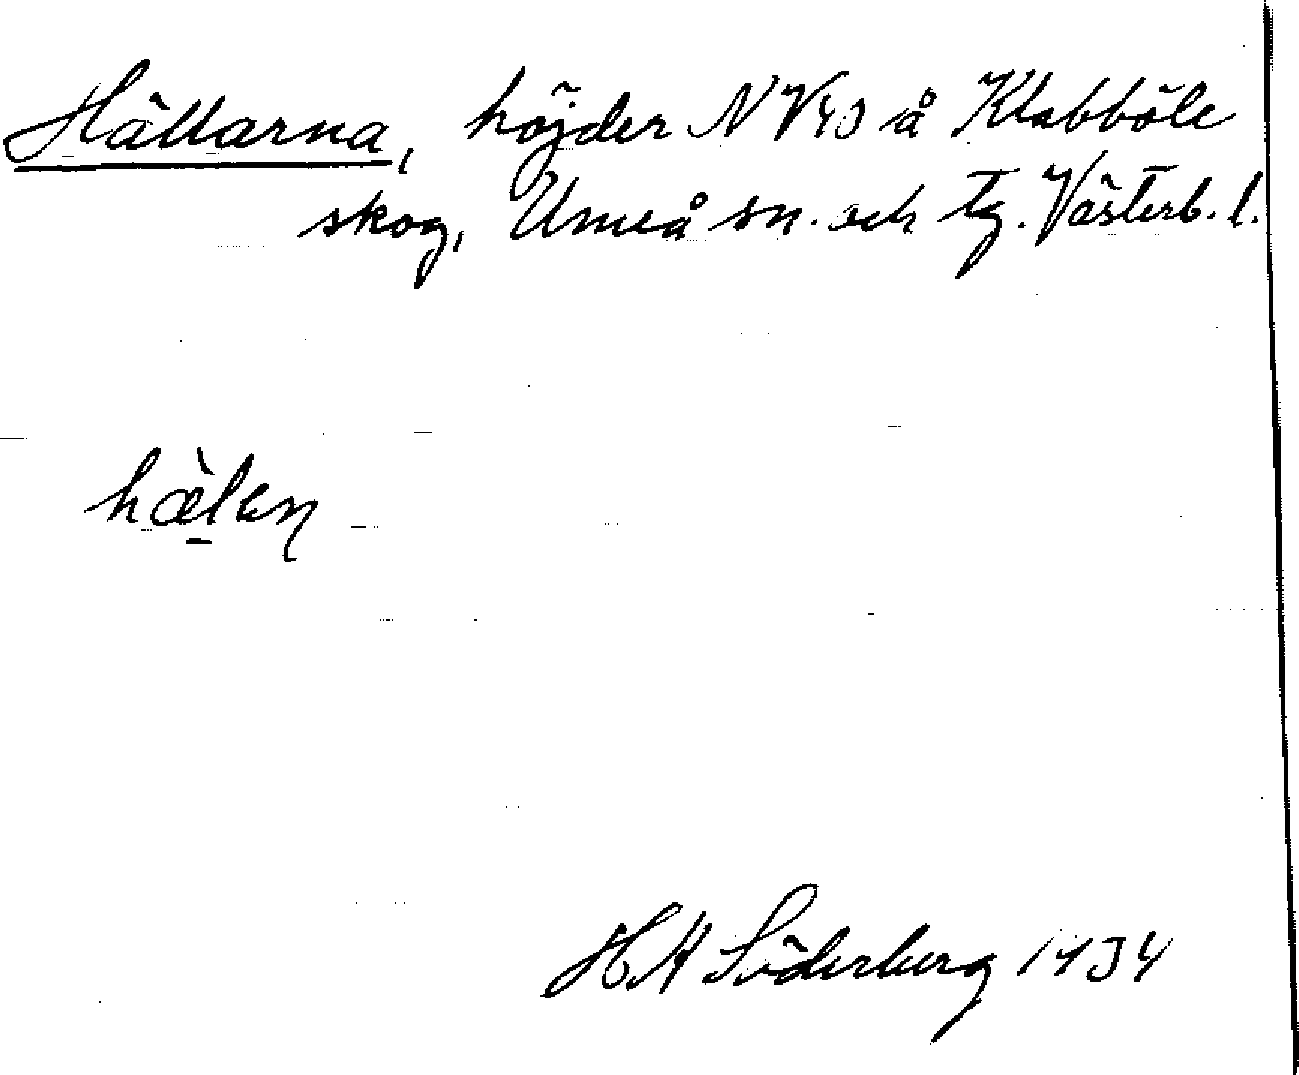 Hällarna, höjder NV å Klabböle
skog, Umeå sn. och tg. Västerb. l.
hälen
H Söderberg 1934